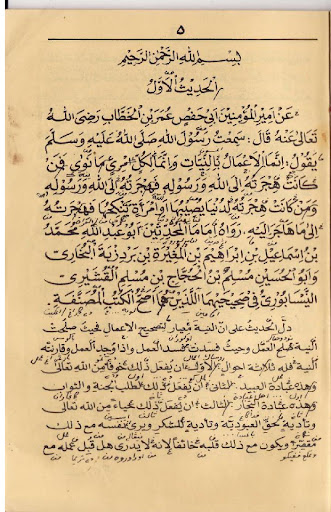 ٥
بسم الله الرحمن الرحيم
الحديث الأول
عن أمير المؤمنين أبي حفص عمر بن الخطاب رضى الله
تعالى عنه قال: سمعت رسول الله صلى الله عليه وسلم
يقول: إنما الأعمال بالنيات وإنما لكل امرئ ما نوى فمن
كانت هجرته إلى الله ورسوله فهجرته إلى الله ورسوله
ومن كانت هجرته لدنيا يصيبها أو امرأة ينكحها فهجرته
إلى ما هاجر إليه. رواه إماما المحدثين أبو عبد الله محمد
بن إسماعيل بن إبراهيم بن المغيرة بن بردزبة البخارى
وأبو الحسين مسلم بن الحجاج بن مسلم القشيرى
النيسابورى فى صحيحيهما اللذين هما أصح الكتب المصنفة.
دل الحديث على أن النية معيار لتصحيح الأعمال فحيث صلحت
النية صلح العمل وحيث فسدت فسد العمل وإذا وجد العمل وقارنته
النية فله ثلاثة أحوال: الأول: أن يفعل ذلك خوفا من الله تعالى
وهذه عبادة العبيد. الثانى: أن يفعل ذلك لطلب الجنة والثواب
وهذه عبادة التجار. الثالث: أن يفعل ذلك حياء من الله تعالى
وتأدية لحق العبودية وتأدية للشكر ويرى نفسه مع ذلك
مقصرا ويكون مع ذلك قلبه خائفا لأنه لا يدرى هل قبل عمله مع